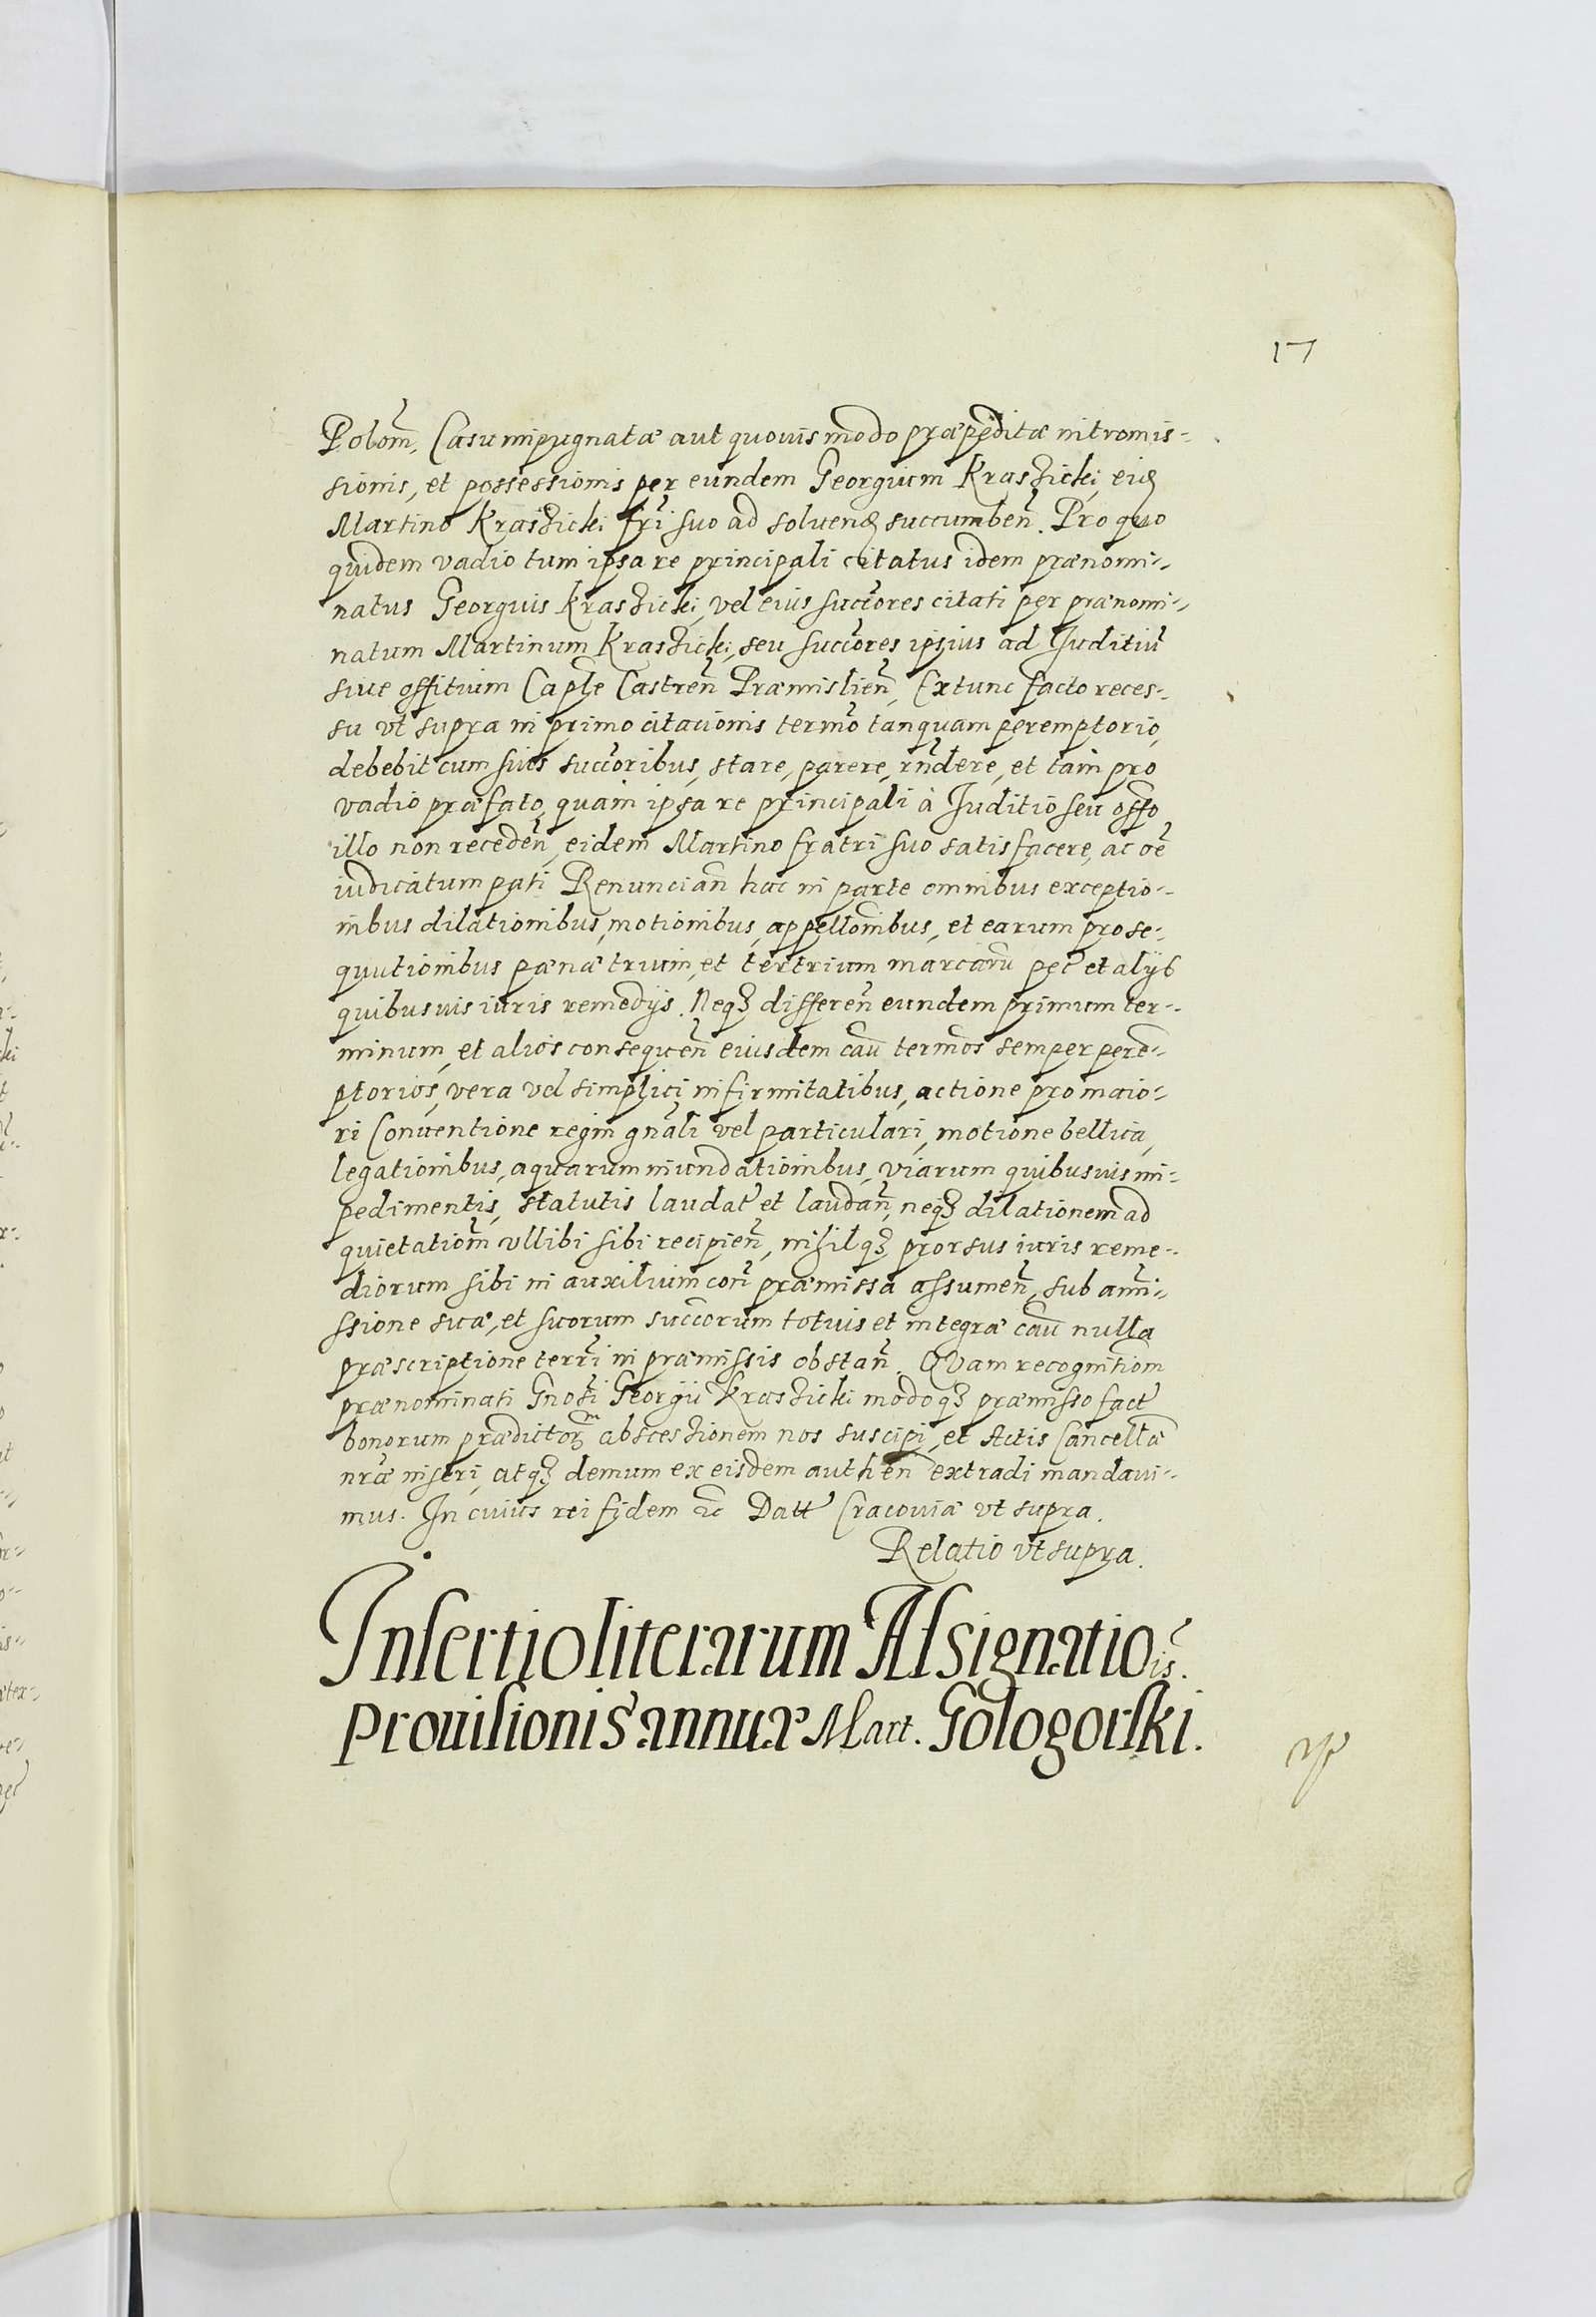 17
Polom̃, Casu impugnatæ aut quouis modo præpeditæ intromis-
sionis, et possessionis per eundem Georgium Kraszicki, eid
Martino Kraszicki fri suo ad soluend succumben̄. Pro quo
quidem vadio tum ipsa re principali citatus idem prænomi-
natus Georgius Kraszicki, vel eius succōres citati per prænomi-
natum Martinum Kraszicki, seu succōres ipsius ad Juditiū
siue offitium Capłe Castren̄ Præmislien̄, Extunc facto reces-
su vt supra in primo citationis termo tanquam peremptorio,
debebit cum suis succōribus, stare, parere, rn̄dere, et tam pro
vadio præfato, quam ipsa re principali à Juditio seu offo
illo non receden̄, eidem Martino fratri suo satisfacere, ac oē
iudicatum pati Renuncian̄ hac in parte omnibus exceptio-
nibus dilationibus, motionibus, appellōnibus, et earum prose-
quutionibus pænæ trium, et tertrium marcarū pec̄ et alys
quibusuis iuris remedijs. Neqȝ differen̄ eundem primum ter-
minum, et alios consequen̄ eiusdem cau̅ termos semper perē-
ptorios, vera vel simplici infirmitatibus, actione pro maio-
ri Conuentione regni gn̄ali vel particulari, motione bellica,
legationibus, aquarum inundationibus, viarum quibusuis im-
pedimentis, statutis laudat̄ et laudan̄, neqȝ dilationem ad
quietationm̄ vllibi sibi recipien̄, nihilqȝ prorsus iuris reme-
diorum sibi in auxilium con̄ præmissa assumen̄, sub ami-
ssione suæ, et suorum succorum totius et integræ cau̅ nulla
præscriptione terrī in præmissis obstan̄. QVam recognitiom
prænominati Gnosi Georgii Kraszicki modoqȝ præmisso fact̄
bonorum prædictorȝ abscessionem nos suscipi, et Actis Cancellæ
nræ inseri, atqȝ demum ex eisdem authen̄ extradi mandaui-
mus. In cuius rei fidem ꝛc Datt̄ Cracouiæ vt supra.
Relatio vt supra.
Insertio literarum Assignatiois.
Prouisionis annuæ Mart. Gologorski.